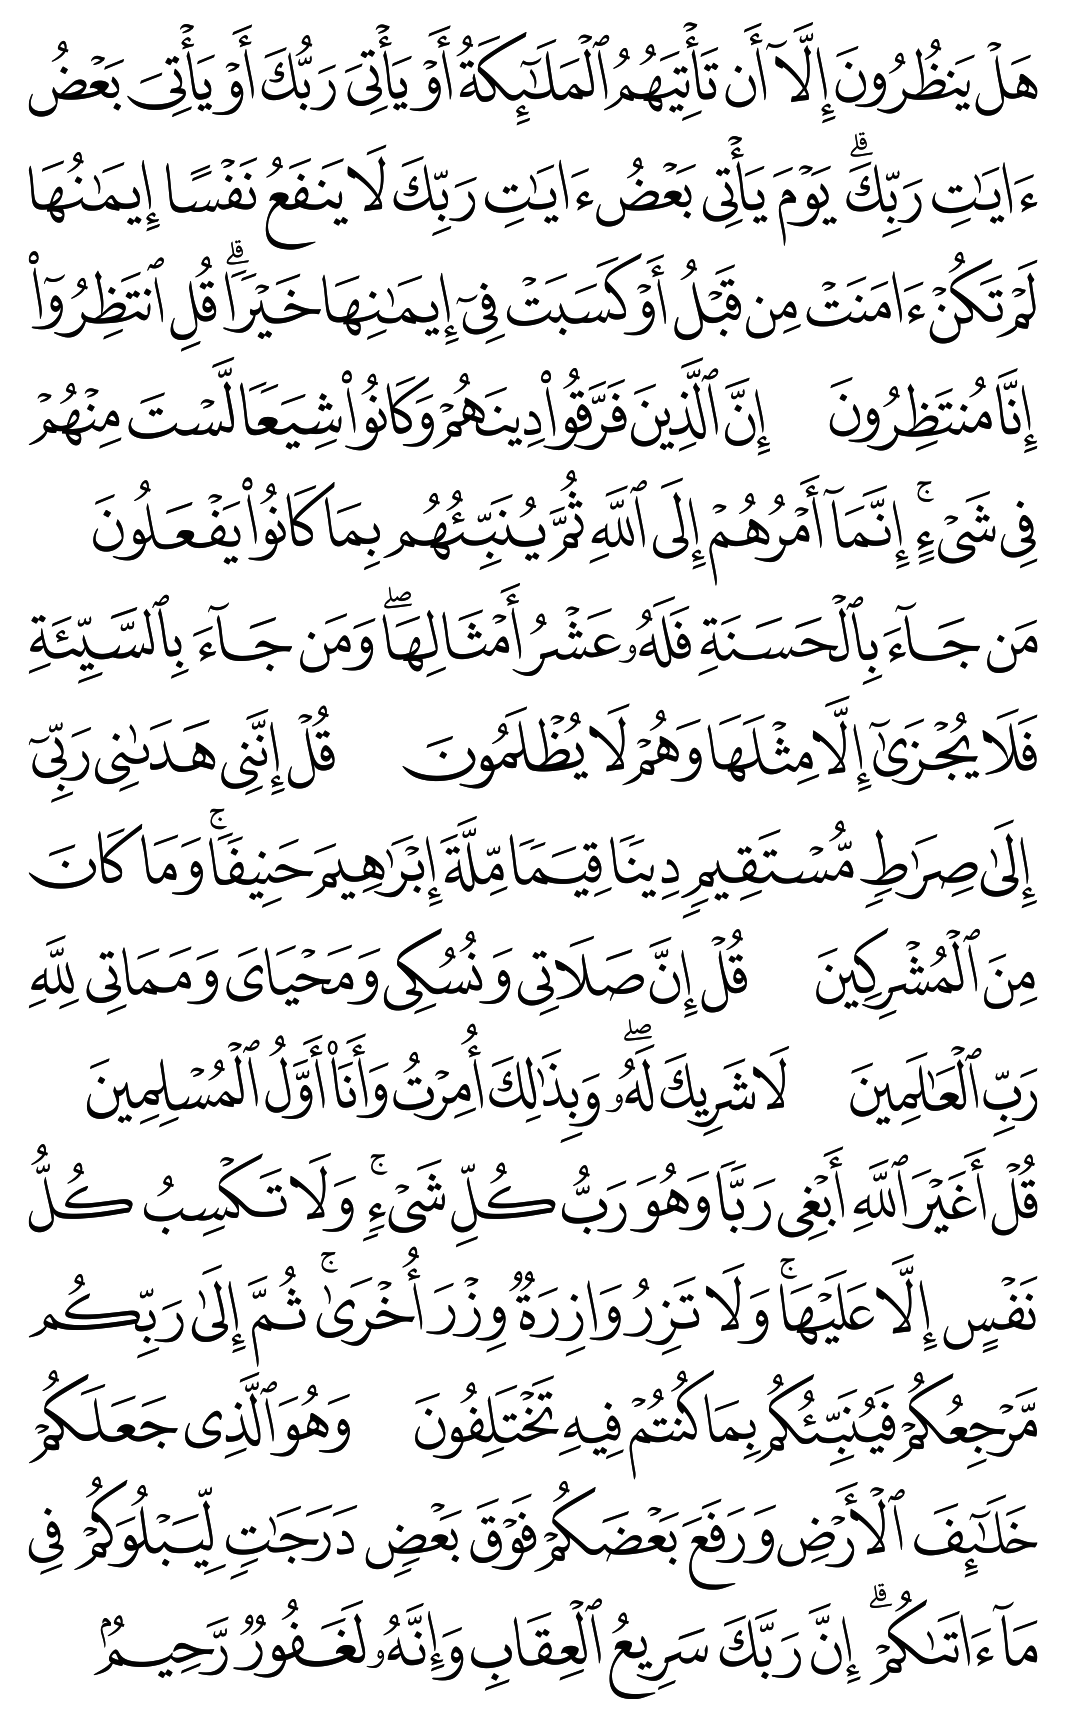 هَلْ يَنظُرُونَ إِلَّآ أَن تَأْتِيَهُمُ ٱلْمَلَـٰٓئِكَةُ أَوْ يَأْتِىَ رَبُّكَ أَوْ يَأْتِىَ بَعْضُ
ءَايَـٰتِ رَبِّكَ ۗ يَوْمَ يَأْتِى بَعْضُ ءَايَـٰتِ رَبِّكَ لَا يَنفَعُ نَفْسًا إِيمَـٰنُهَا
لَمْ تَكُنْ ءَامَنَتْ مِن قَبْلُ أَوْ كَسَبَتْ فِىٓ إِيمَـٰنِهَا خَيْرًا ۗ قُلِ ٱنتَظِرُوٓا۟
إِنَّا مُنتَظِرُونَ إِنَّ ٱلَّذِينَ فَرَّقُوا۟ دِينَهُمْ وَكَانُوا۟ شِيَعًا لَّسْتَ مِنْهُمْ
فِى شَىْءٍ ۚ إِنَّمَآ أَمْرُهُمْ إِلَى ٱللَّهِ ثُمَّ يُنَبِّئُهُم بِمَا كَانُوا۟ يَفْعَلُونَ
مَن جَآءَ بِٱلْحَسَنَةِ فَلَهُۥ عَشْرُ أَمْثَالِهَا ۖ وَمَن جَآءَ بِٱلسَّيِّئَةِ
فَلَا يُجْزَىٰٓ إِلَّا مِثْلَهَا وَهُمْ لَا يُظْلَمُونَ قُلْ إِنَّنِى هَدَىٰنِى رَبِّىٓ
إِلَىٰ صِرَٰطٍ مُّسْتَقِيمٍ دِينًا قِيَمًا مِّلَّةَ إِبْرَٰهِيمَ حَنِيفًا ۚ وَمَا كَانَ
مِنَ ٱلْمُشْرِكِينَ قُلْ إِنَّ صَلَاتِى وَنُسُكِى وَمَحْيَاىَ وَمَمَاتِى لِلَّهِ
رَبِّ ٱلْعَـٰلَمِينَ لَا شَرِيكَ لَهُۥ ۖ وَبِذَٰلِكَ أُمِرْتُ وَأَنَا۠ أَوَّلُ ٱلْمُسْلِمِينَ
قُلْ أَغَيْرَ ٱللَّهِ أَبْغِى رَبًّا وَهُوَ رَبُّ كُلِّ شَىْءٍ ۚ وَلَا تَكْسِبُ كُلُّ
نَفْسٍ إِلَّا عَلَيْهَا ۚ وَلَا تَزِرُ وَازِرَةٌ وِزْرَ أُخْرَىٰ ۚ ثُمَّ إِلَىٰ رَبِّكُم
مَّرْجِعُكُمْ فَيُنَبِّئُكُم بِمَا كُنتُمْ فِيهِ تَخْتَلِفُونَ وَهُوَ ٱلَّذِى جَعَلَكُمْ
خَلَـٰٓئِفَ ٱلْأَرْضِ وَرَفَعَ بَعْضَكُمْ فَوْقَ بَعْضٍ دَرَجَـٰتٍ لِّيَبْلُوَكُمْ فِى
مَآ ءَاتَىٰكُمْ ۗ إِنَّ رَبَّكَ سَرِيعُ ٱلْعِقَابِ وَإِنَّهُۥ لَغَفُورٌ رَّحِيمٌۢ